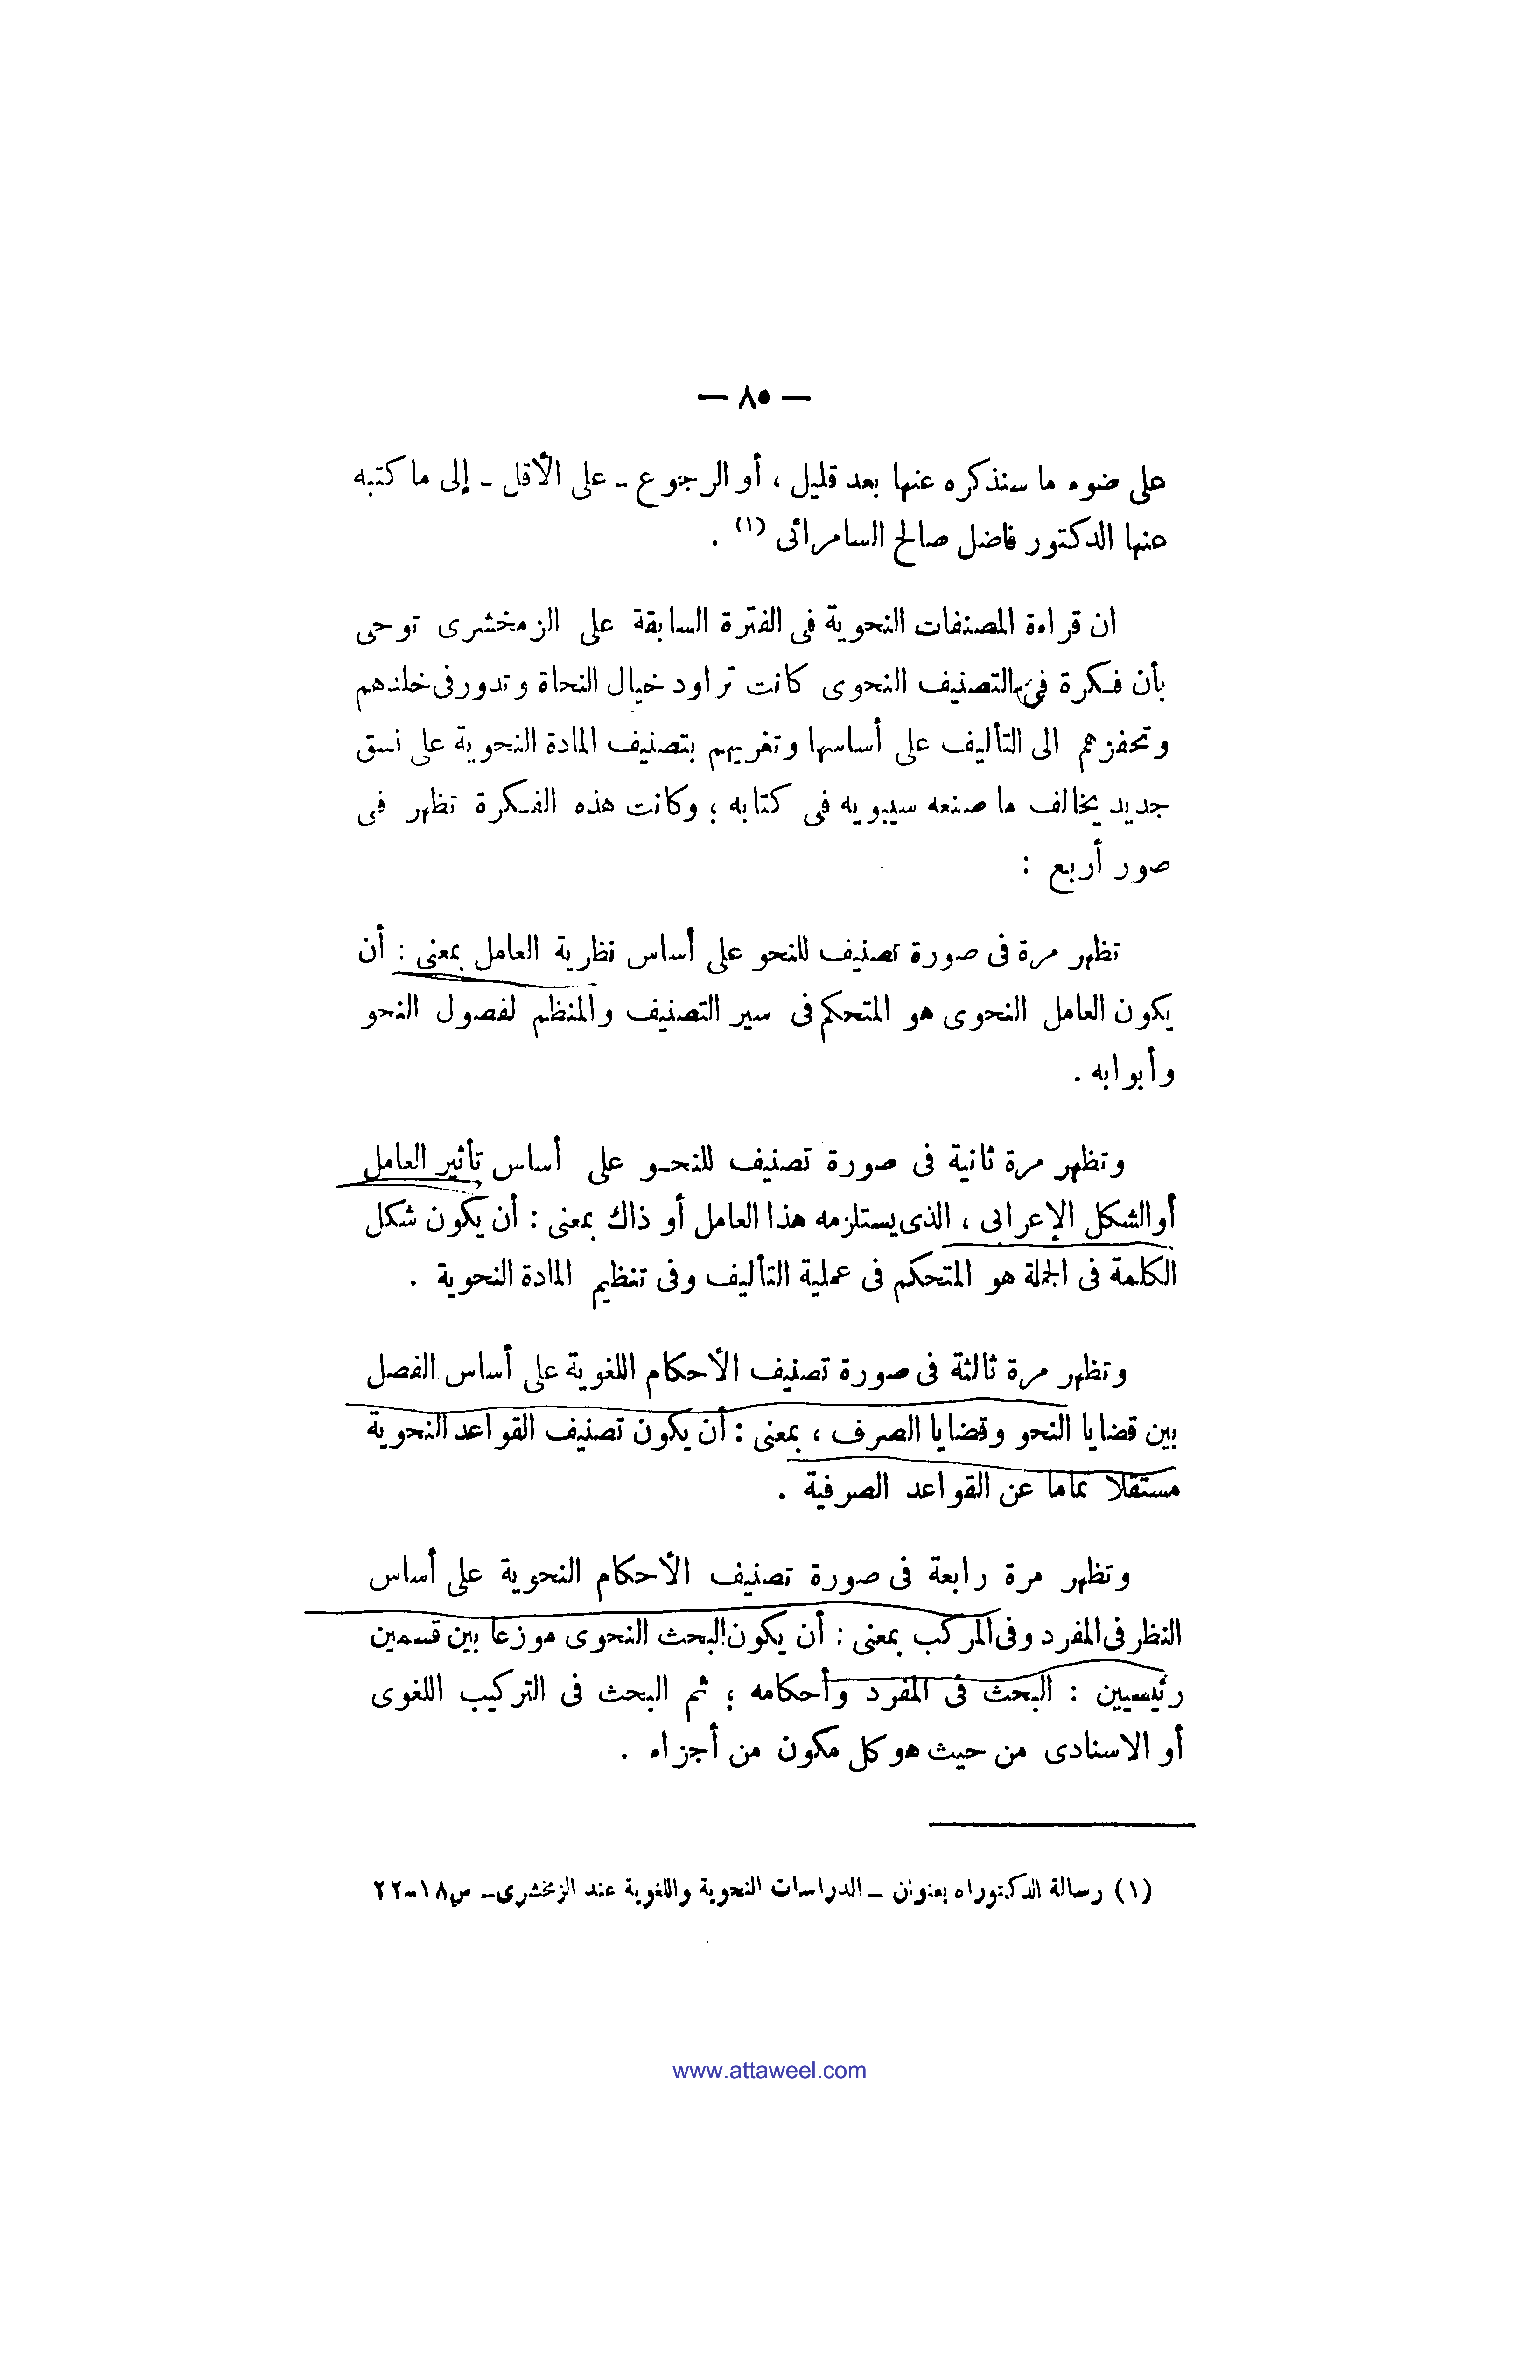 — ٨٥ —
على ضوء ما سنذكره عنها بعد قليل ، أو الرجوع - على الأقل - إلى ما كتبه
عنها الدكتور فاضل صالح السامرائى (١) .
ان قراءة المصنفات النحوية فى الفترة السابقة على الزمخشرى توحى
بأن فكرة فى التصنيف النحوى كانت تراود خيال النحاة وتدور فى خلدهم
وتحفزهم الى التأليف على أساسها وتغريهم بتصنيف المادة النحوية على نسق
جديد يخالف ما صنعه سيبويه فى كتابه ؛ وكانت هذه الفكرة تظهر فى
صور أربع :
تظهر مرة فى صورة تصنيف للنحو على أساس نظرية العامل بمعنى : أن
يكون العامل النحوى هو المتحكم فى سير التصنيف والمنظم لفصول النحو
وأبوابه .
وتظهر مرة ثانية فى صورة تصنيف للنحو على أساس تأثير العامل
أو الشكل الإعرابى ، الذى يستلزمه هذا العامل أو ذاك بمعنى : أن يكون شكل
الكلمة فى الجملة هو المتحكم فى عملية التأليف وفى تنظيم المادة النحوية .
وتظهر مرة ثالثة فى صورة تصنيف الأحكام اللغوية على أساس الفصل
بين قضايا النحو وقضايا الصرف ، بمعنى : أن يكون تصنيف القواعد النحوية
مستقلا تماما عن القواعد الصرفية .
وتظهر مرة رابعة فى صورة تصنيف الأحكام النحوية على أساس
النظر فى المفرد وفى المركب بمعنى : أن يكون البحث النحوى موزعا بين قسمين
رئيسيين : البحث فى المفرد وأحكامه ؛ ثم البحث فى التركيب اللغوى
أو الاسنادى من حيث هو كل مكون من أجزاء .
(١) رسالة الدكتوراه بعنوان - الدراسات النحوية واللغوية عند الزمخشرى - ص ١٨-٢٢
www.attaweel.com